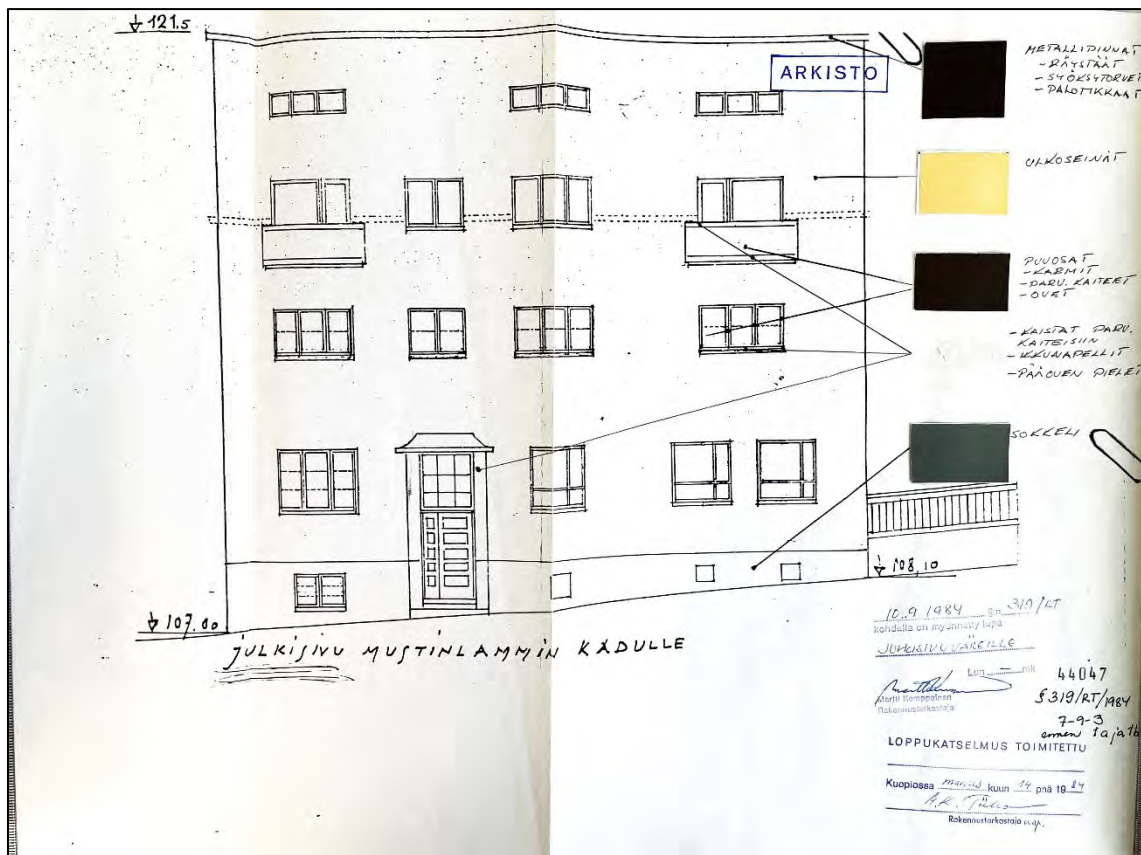 121.5
ARKISTO
METALLIPINNAT
- RÄYSTÄÄT
- SYÖKSYTORVET
- PALOTIKKAAT
ULKOSEINÄT
PUUOSAT
- KARMIT
- PARV. KAITEET
- OVET
- KAISTAT PARV.
KAITEISIIN
- IKKUNAPELLIT
- PÄÄOVEN PIELET
SOKKELI
108,10
107.00
JULKISIVU MUSTINLAMMIN KADULLE
10.9 1984 §:n 319/RT
kohdalla on myönnetty lupa
JULKISIVUVÄREILLE
Lun. — mk
Martti Komppainen
Rakennustarkastaja
44047
§ 319/RT/1984
7-9-3
1a ja 1b
LOPPUKATSELMUS TOIMITETTU
Kuopiossa kuun 14 pnä 1984
Rakennustarkastaja